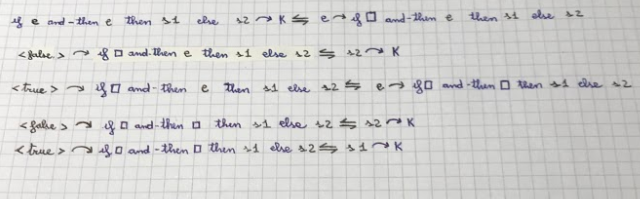 if e and-then e then s1 else s2 ↷ K ⇆ e ↷ if □ and-then e then s1 else s2
<false> ↷ if □ and-then e then s1 else s2 ⇆ s2 ↷ K
<true> ↷ if □ and-then e then s1 else s2 ⇆ e ↷ if □ and-then □ then s1 else s2
<false> ↷ if □ and-then □ then s1 else s2 ⇆ s2 ↷ K
<true> ↷ if □ and-then □ then s1 else s2 ⇆ s1 ↷ K